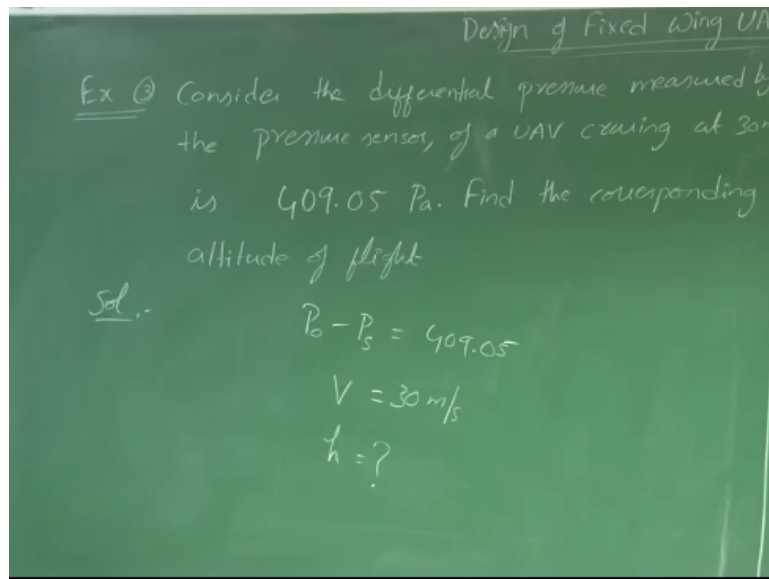 Design of Fixed Wing UA
Ex ③ Consider the differential pressure measured by
the pressure sensor, of a UAV crusing at 30m
is 409.05 Pa. Find the corresponding
altitude of flight
Sol.-
P₀ - Pₛ = 409.05
V = 30 m/s
h = ?